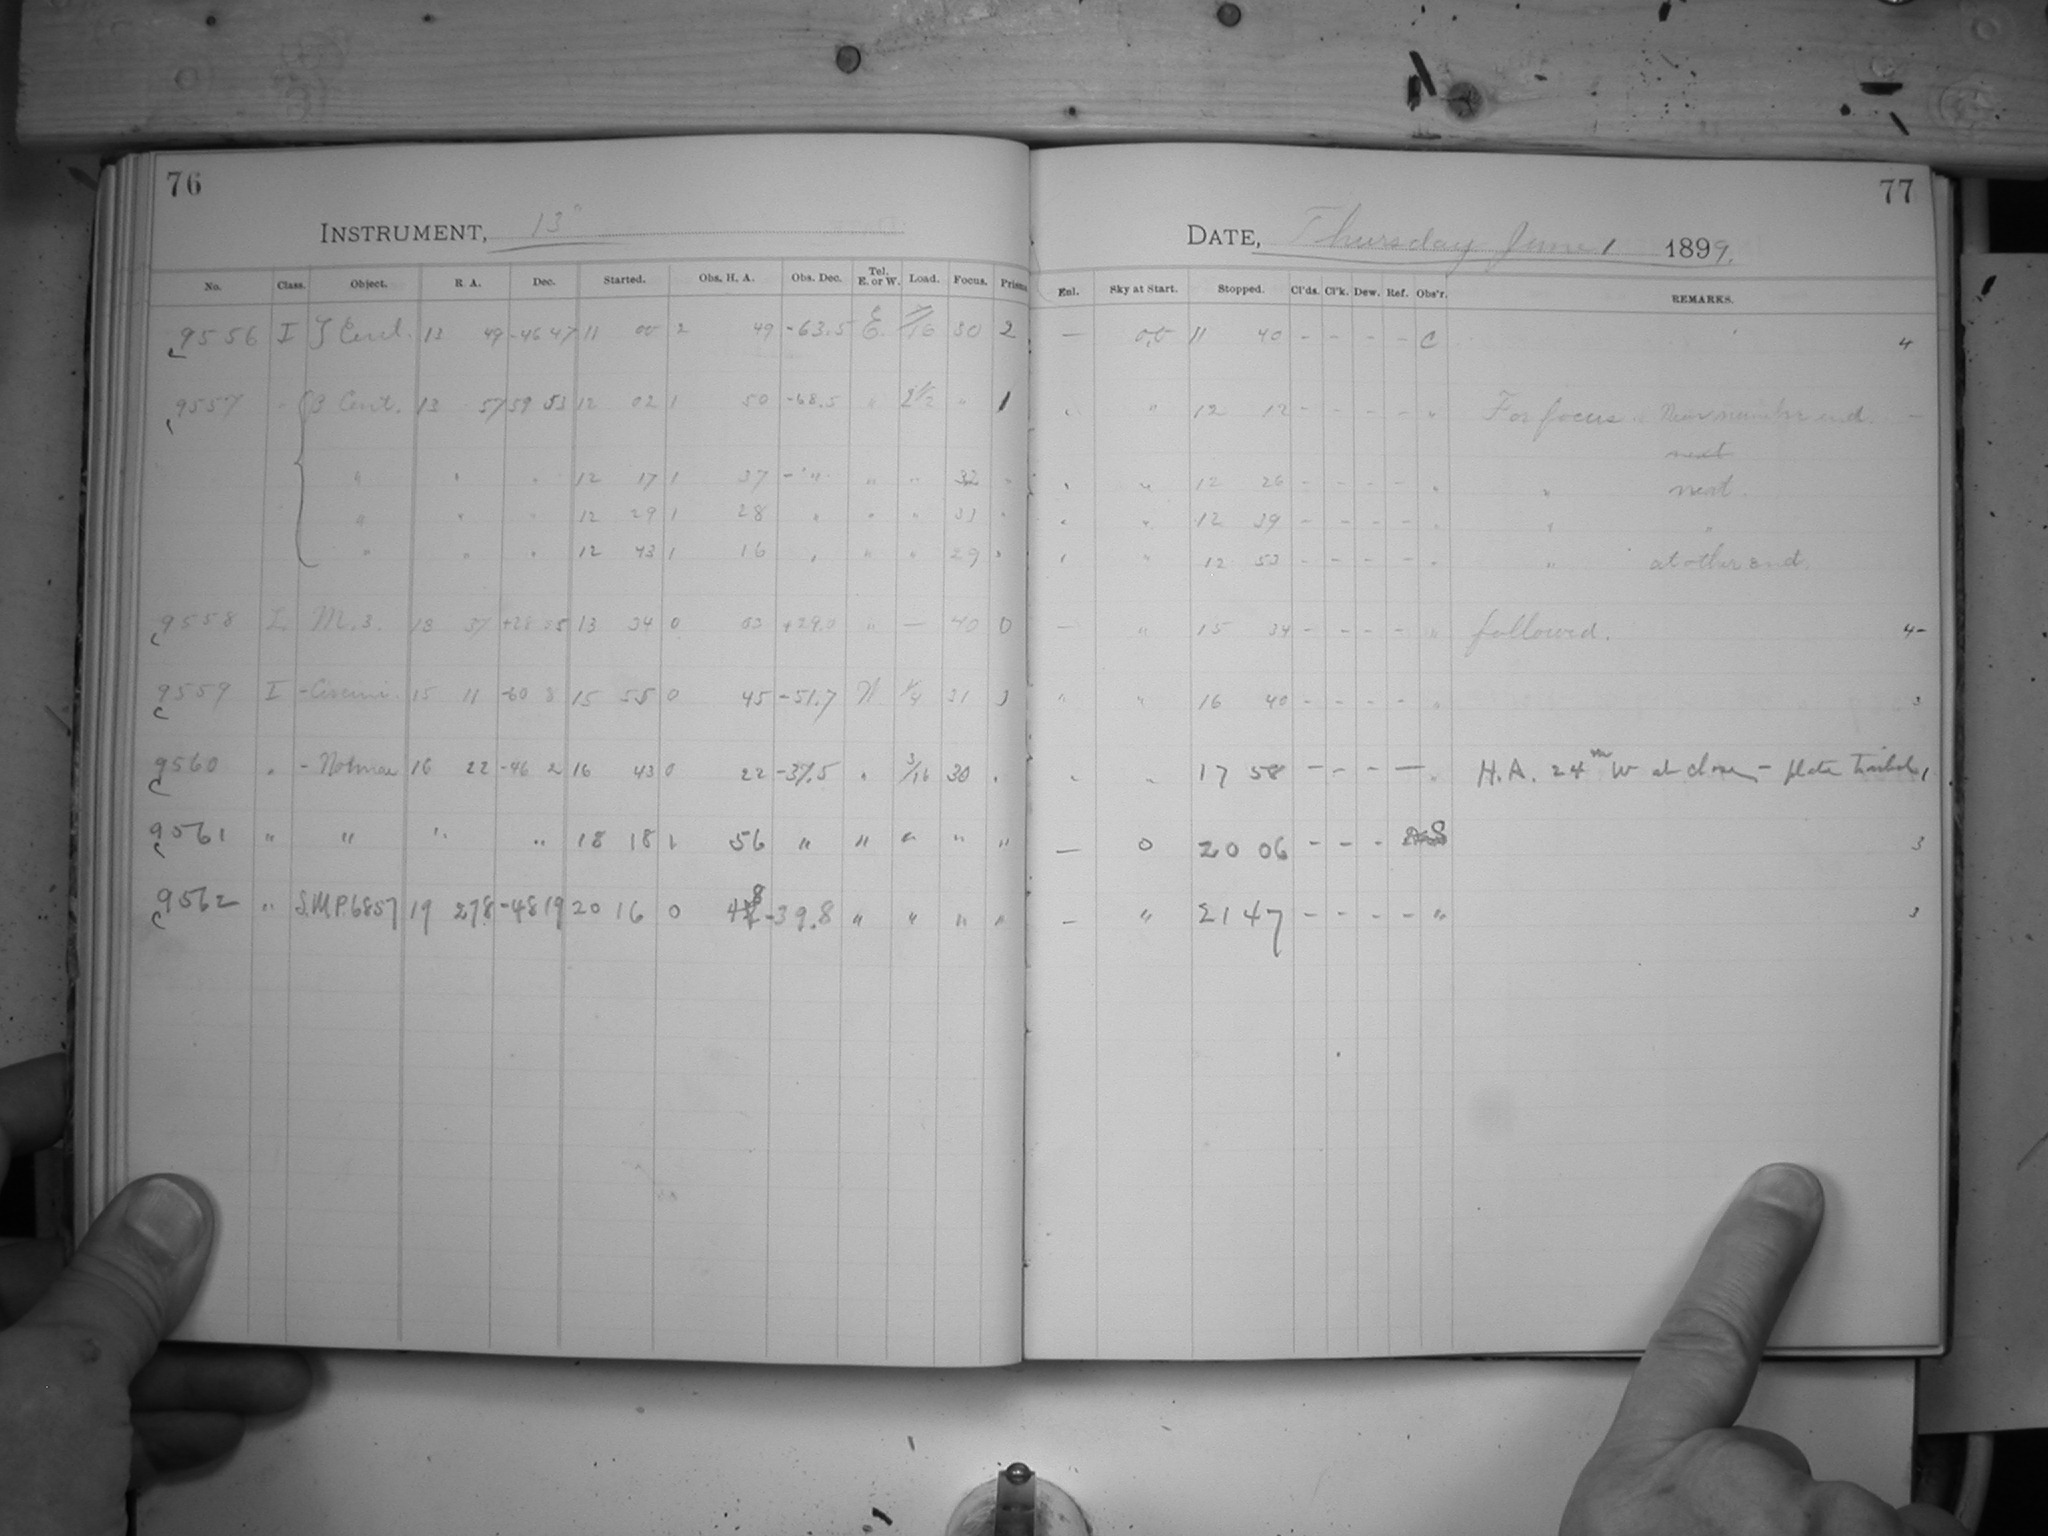 76
INSTRUMENT, 13"
No. Class. Object. R. A. Dec. Started. Obs. H. A. Obs. Dec. Tel. E. or W. Load. Focus. Prisms
9556 I ζ Cent. 13 49 -46 47 11 00 2 49 -63.5 E. 30 2
9557 - β Cent. 13 57 59 53 12 02 1 50 -68.5 " 2 1/2 " 1
" " " 12 17 1 37 - " " " 32 "
" " " 12 29 1 28 " " " 31 "
" " " 12 43 1 16 " " " 29 "
9558 I M.3. 13 37 +28 13 34 0 03 +29.0 " — 40 0
9559 I - Circini. 15 11 -60 8 15 55 0 45 -51.7 W 1/4 31 3
9560 " - Normae 16 22 -46 2 16 43 0 22 -37.5 " 3/16 30 "
9561 " " " " 18 18 1 56 " " " " "
9562 " S.M.P. 6857 19 27.8 -48 19 20 16 0 48 -39.8 " " " "
77
DATE, Thursday June 1 1899.
Enl. Sky at Start. Stopped. Cl'ds. Cl'k. Dew. Ref. Obs'r. REMARKS.
— 11 40 - - - - C 4
" " 12 12 - - - - " For focus. Near number end. —
next
" " 12 26 - - - - " " next.
" " 12 39 - - - - " " "
" " 12 53 - - - - " " at other end.
— " 15 34 - - - - " followed. 4-
" " 16 40 - - - - " 3
" " 17 58 - - - — " H.A. 24m W at close - plate 1
— 0 20 06 - - - S 3
— " 21 47 - - - - " 3